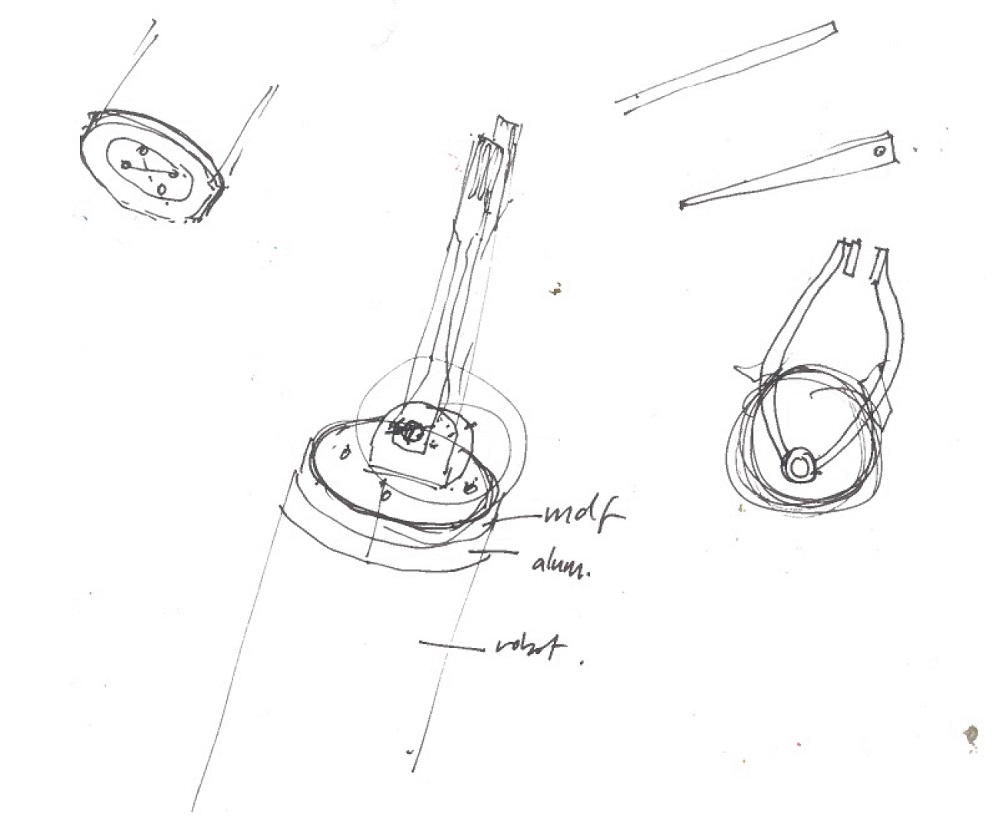 mdf
alum.
robot.